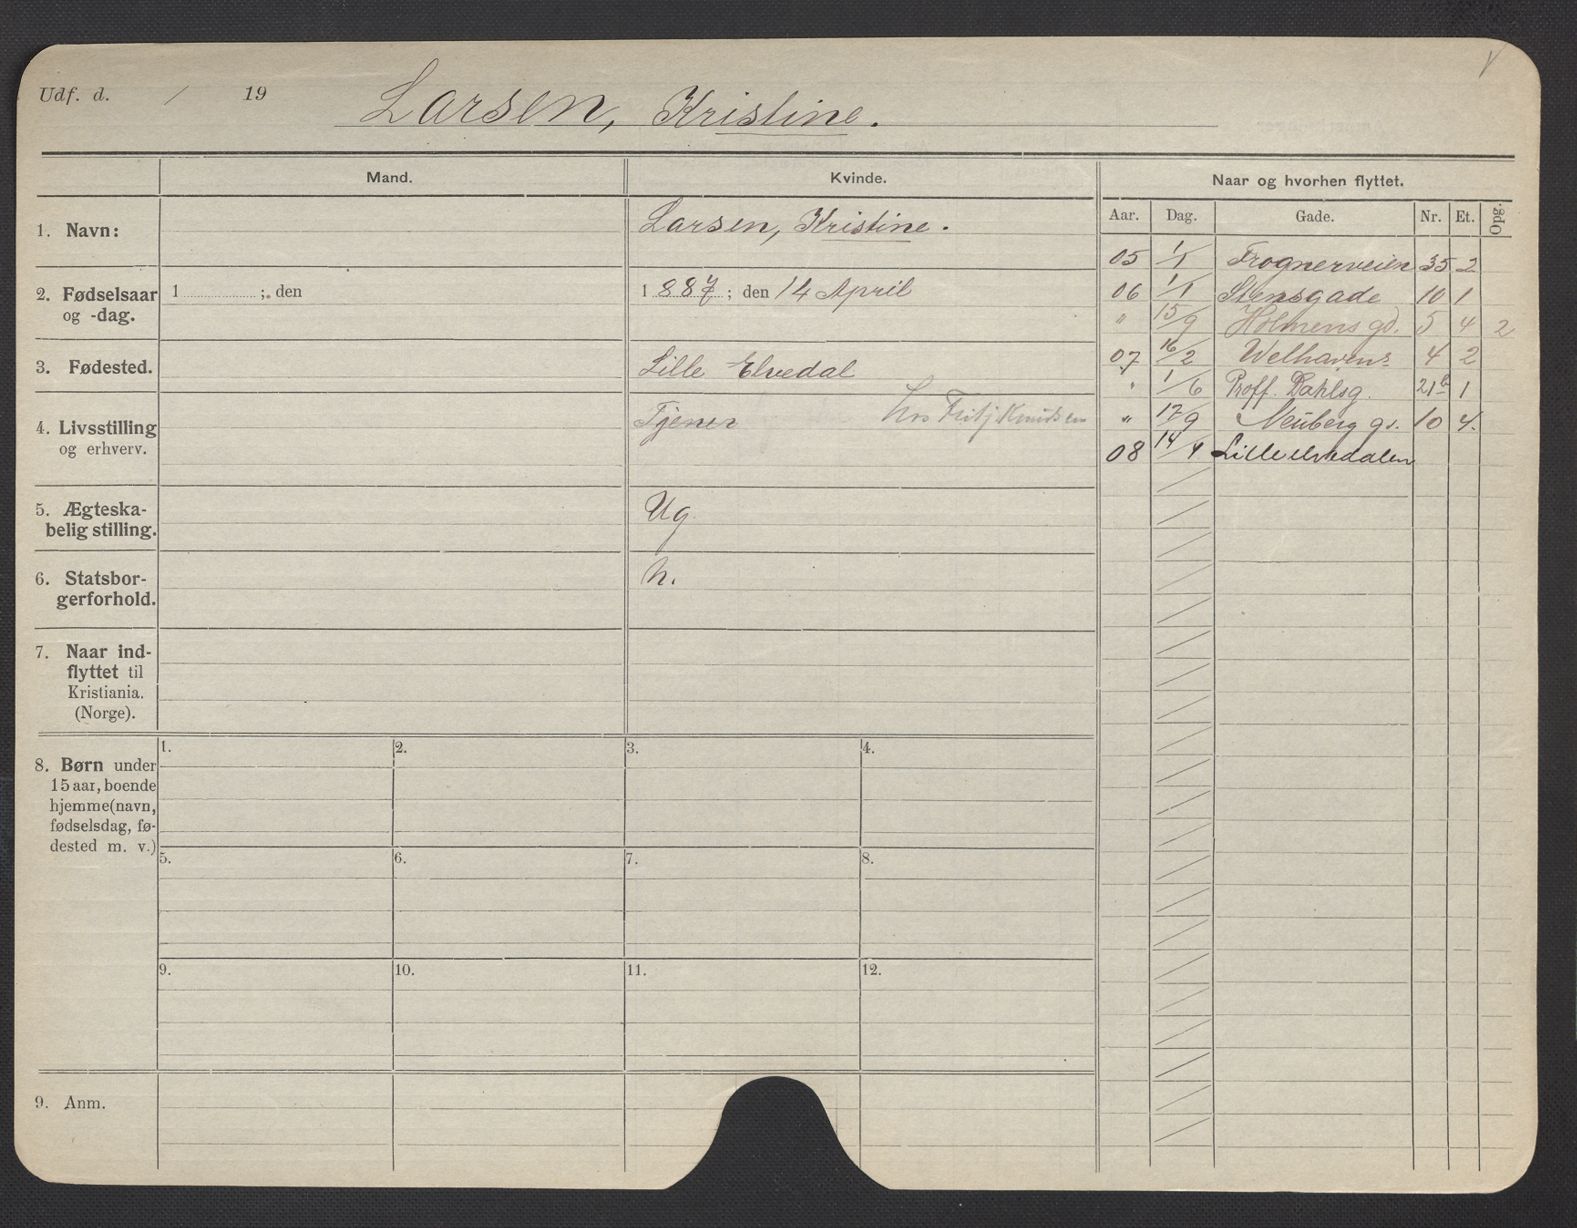 Udf. d. / 19 Larsen, Kristine.
Mand.
Kvinde.
Naar og hvorhen flyttet.
Aar. Dag. Gade. Nr. Et. Opg.
1. Navn:
Larsen, Kristine.
2. Fødselsaar
og -dag.
1 ; den
1 887 ; den 14 April
3. Fødested.
Lille Elvedal
4. Livsstilling
og erhverv.
Tjener hos Fritj Knudsen
5. Ægteska-
belig stilling.
Ug.
6. Statsbor-
gerforhold.
n.
7. Naar ind-
flyttet til
Kristiania.
(Norge).
8. Børn under
15 aar, boende
hjemme (navn,
fødselsdag, fø-
dested m. v.)
1. 2. 3. 4.
5. 6. 7. 8.
9. 10. 11. 12.
9. Anm.
05 1/1 Frognerveien 35 2
06 1/1 Stensgade 10 1
" 15/9 Holmens gd. 5 4 2
07 16/2 Welhavens 4 2
" 1/6 Proff. Dahlsg. 21b 1
" 17/9 Neuberg gd. 10 4.
08 14/4 Lilleelvedalen